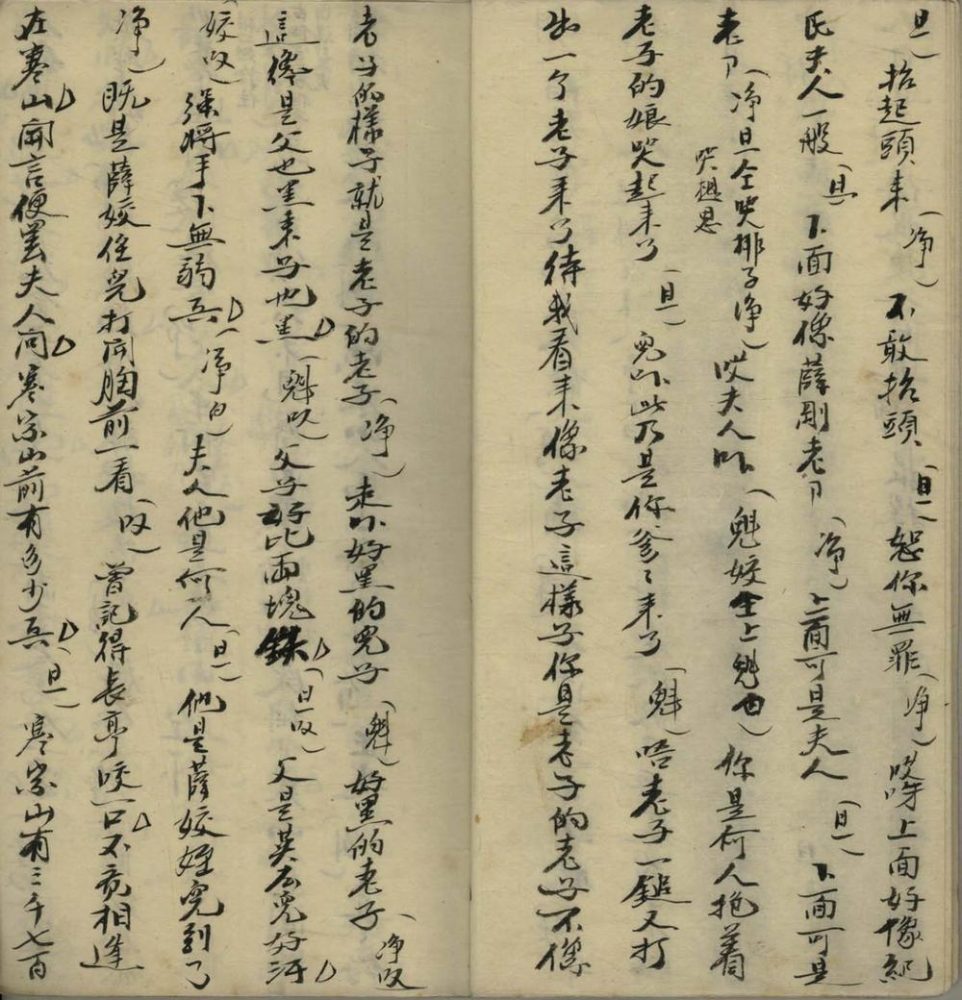 旦）抬起頭來（净）不敢抬頭（旦）恕你無罪（净）哎呀上面好像紀
氏夫人一般（旦）下面好像薛剛老卩（净）上面可是夫人（旦）下面可是
老卩（净旦仝哭排子净）哎夫人吓（魁姣仝上魁白）你是何人抱着
哭想思
老子的娘哭起來了（旦）兒吓此乃是你爹〻來了（魁）唔老子一鎚又打
出一个老子來了待我看來像老子這樣子你是老子的老子不像
老子的樣子就是老子的老子（净）走吓好黑的兒子（魁）好黑的老子（净叹
這儘是父也黑來子也黑（魁叹）父子好比兩塊鉄（旦叹）父是英雄兒好汗
姣叹）强將手下無弱兵（净白）夫人他是何人（旦）他是薛姣姪兒到了
净）既是薛姣侄兒打開胸前一看（叹）曾記得長亭咬一口不竟相逢
在寒山闻言便罢夫人问寒宗山前有多少兵（旦）寒宗山有三千七百